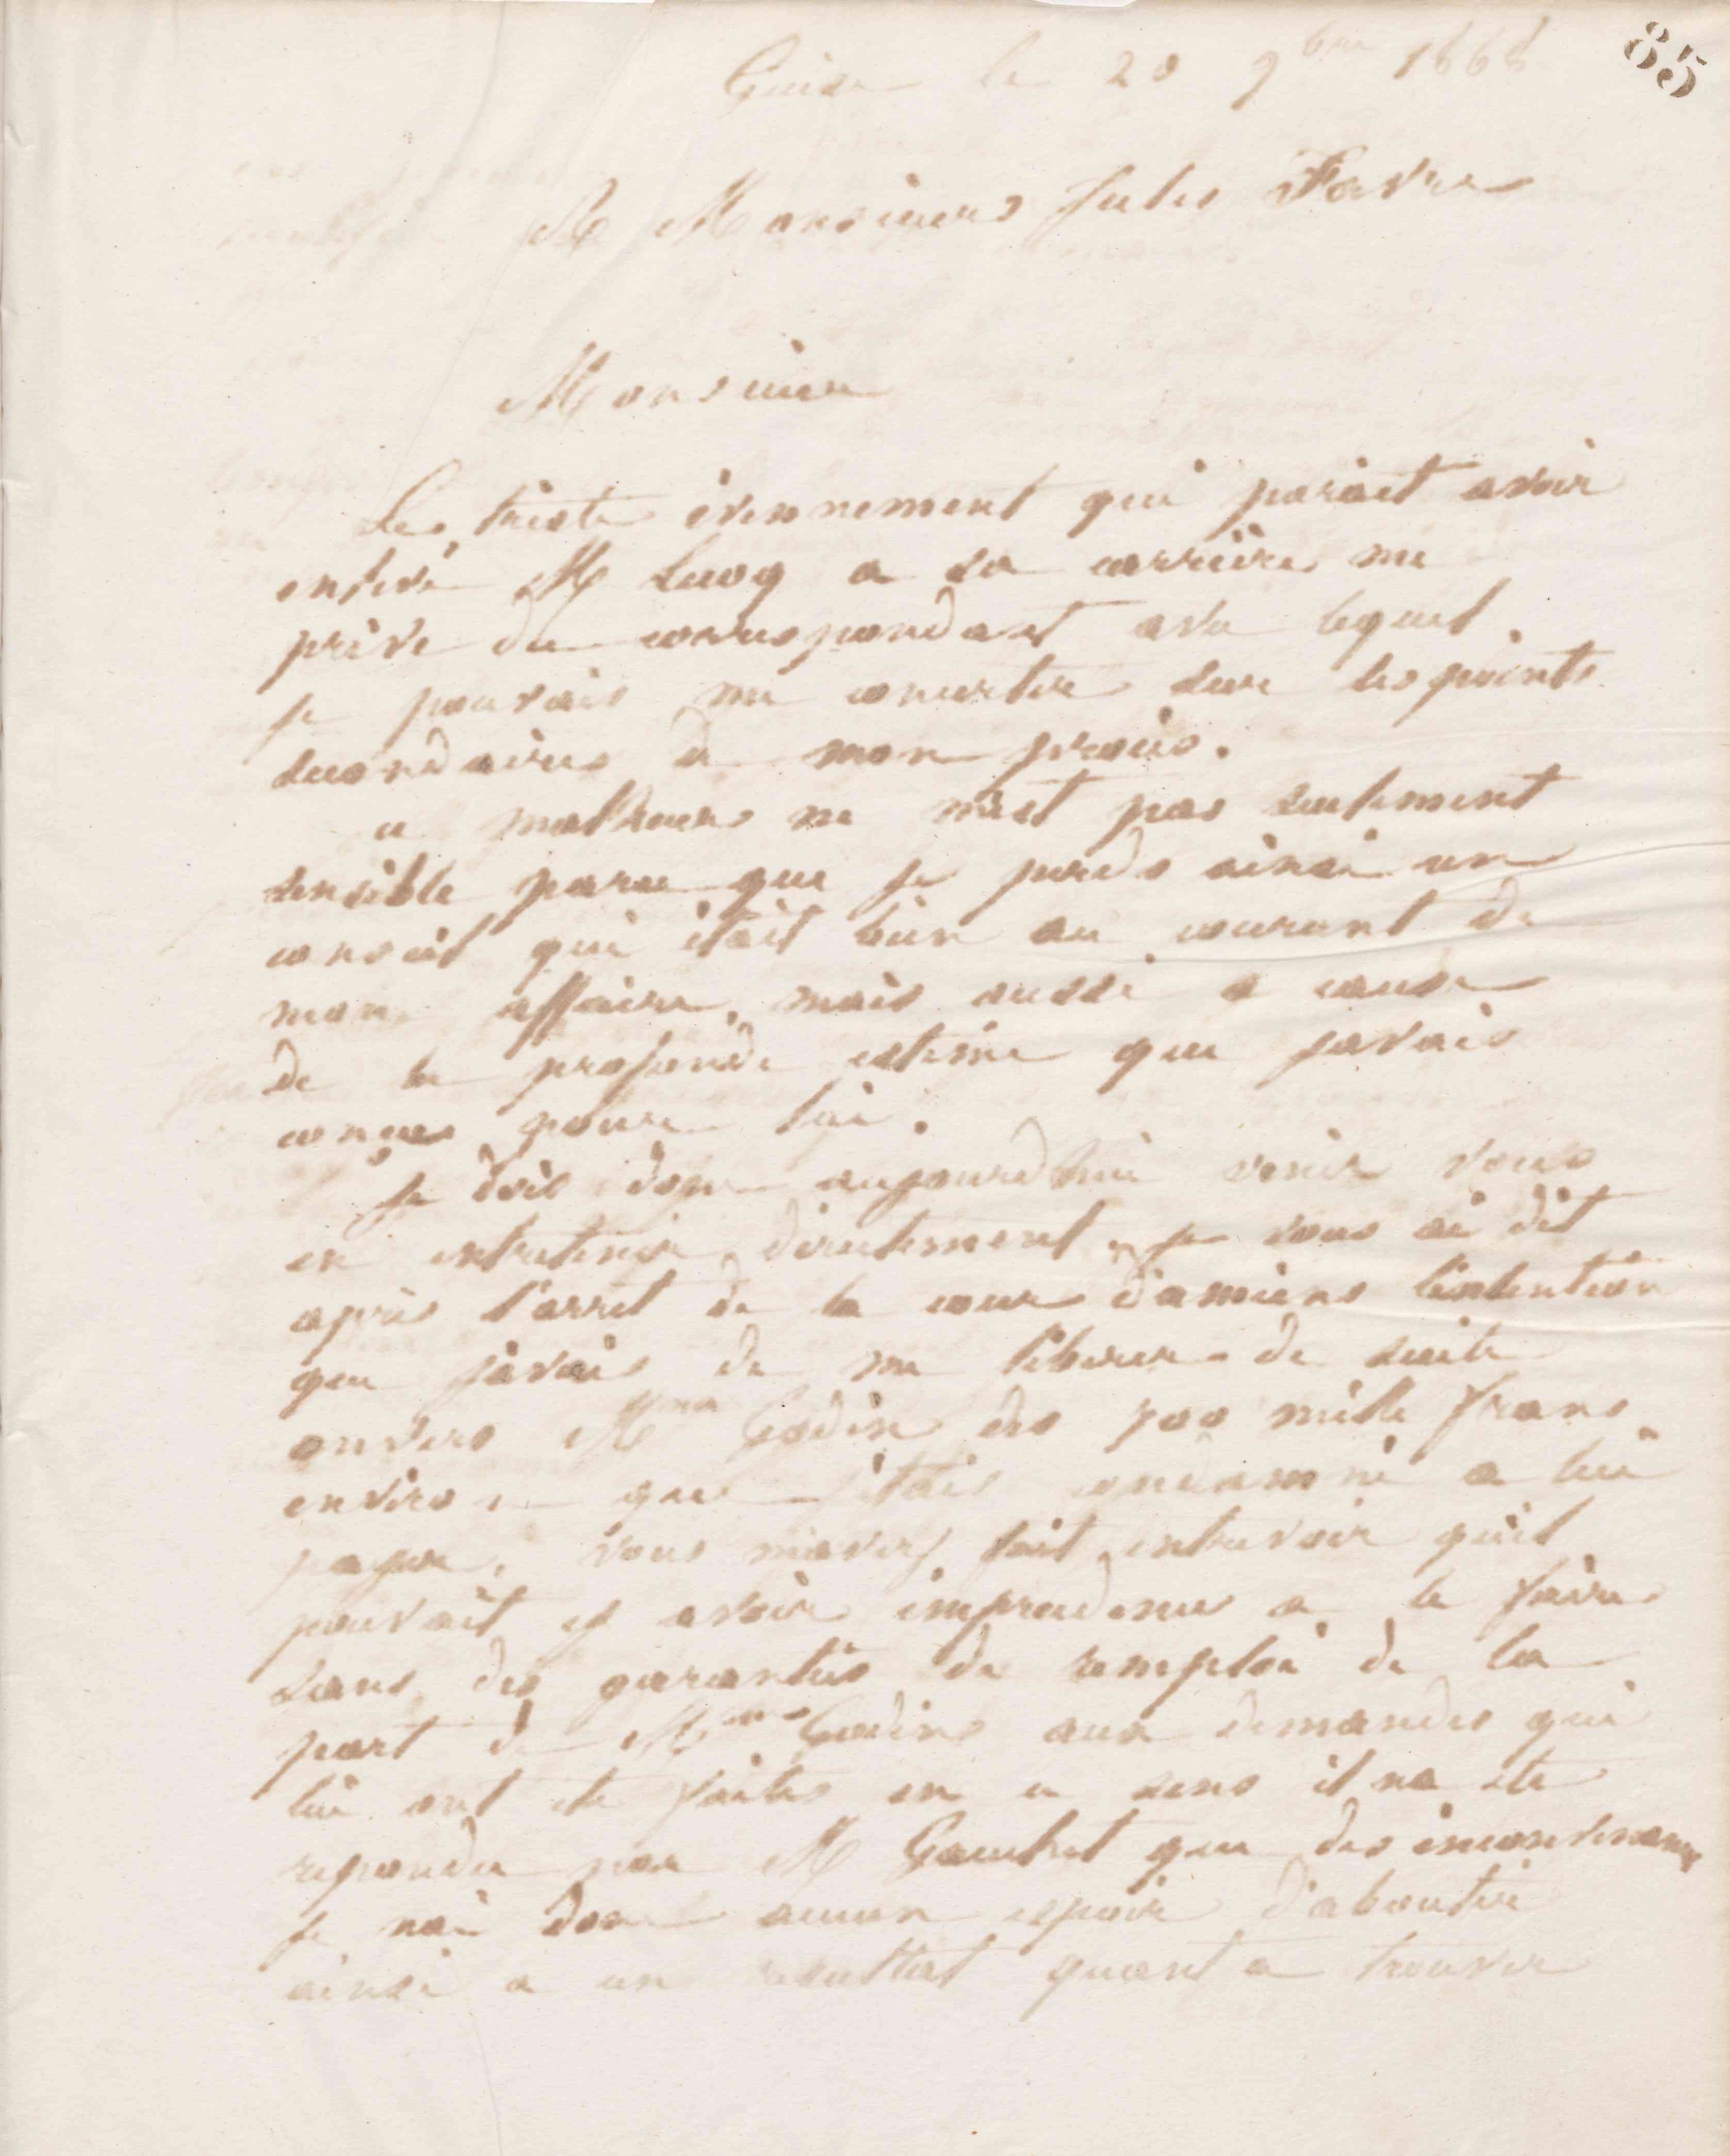 85
Guise le 20 9bre 1868
A Monsieur Jules Favre
Monsieur
Le triste évennement qui parait avoir
enlevé M Lecoq a sa carrière me
prive du correspondant avec lequel
je pouvais me concerter sur les points
secondaires de mon procès.
ce malheur ne m'est pas seulement
sensible parce que je perds ainsi un
conseil qui était bien au courant de
mon affaire, mais aussi a cause
de la profonde estime que javais
conçue pour lui.
Je dois donc aujourdhui venir vous
en entretenir directement. je vous ai dit
après l'arret de la cour d'amiens l'intention
que j'avais de me liberer de suite
envers Mme Godin des 700 mille francs
environ que j'étais condamné a lui
payer, vous m'avez fait entrevoir qu'il
pouvait y avoir imprudence a le faire
sans des garanties de remploi de la
part de Mme Godin aux demandes qui
lui ont ete faites en ce sens il na ete
repondu par M que des inconvenances
je nai donc aucun espoir d'aboutir
ainsi a un resultat quant a trouver